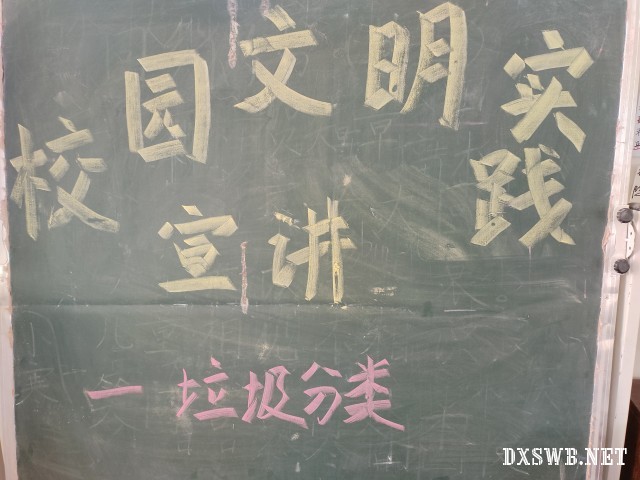 校园文明实践
宣讲
一垃圾分类
DXSWB.NET